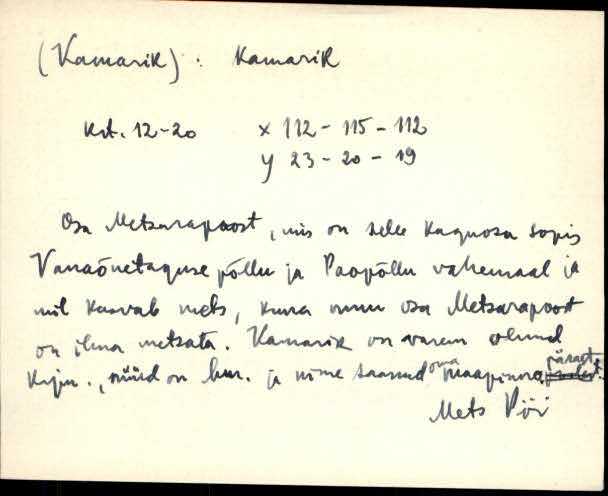 (Kamarik). Kamarik
krt. 12-20 x 112 - 115 - 112
y 23 - 20 - 19
Osa Metsarapoost, mis on selle kaguosa sopis
Vanaõuetaguse põllu ja Paopõllu vahemaal ja
mil kasvab mets, kuna muu osa Metsarapoost
on ilma metsata. Kamarik on varem olnud
, nüüd on ja nime saanud oma maapinna pärast.
Mets